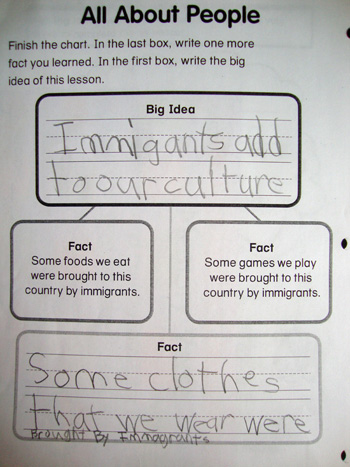 All About People
Finish the chart. In the last box, write one more
fact you learned. In the first box, write the big
idea of this lesson.
Big Idea
Immigants add
to our culture
Fact
Some foods we eat
were brought to this
country by immigrants.
Fact
Some games we play
were brought to this
country by immigrants.
Fact
Some clothes
that we wear were
Brought By Immagrants